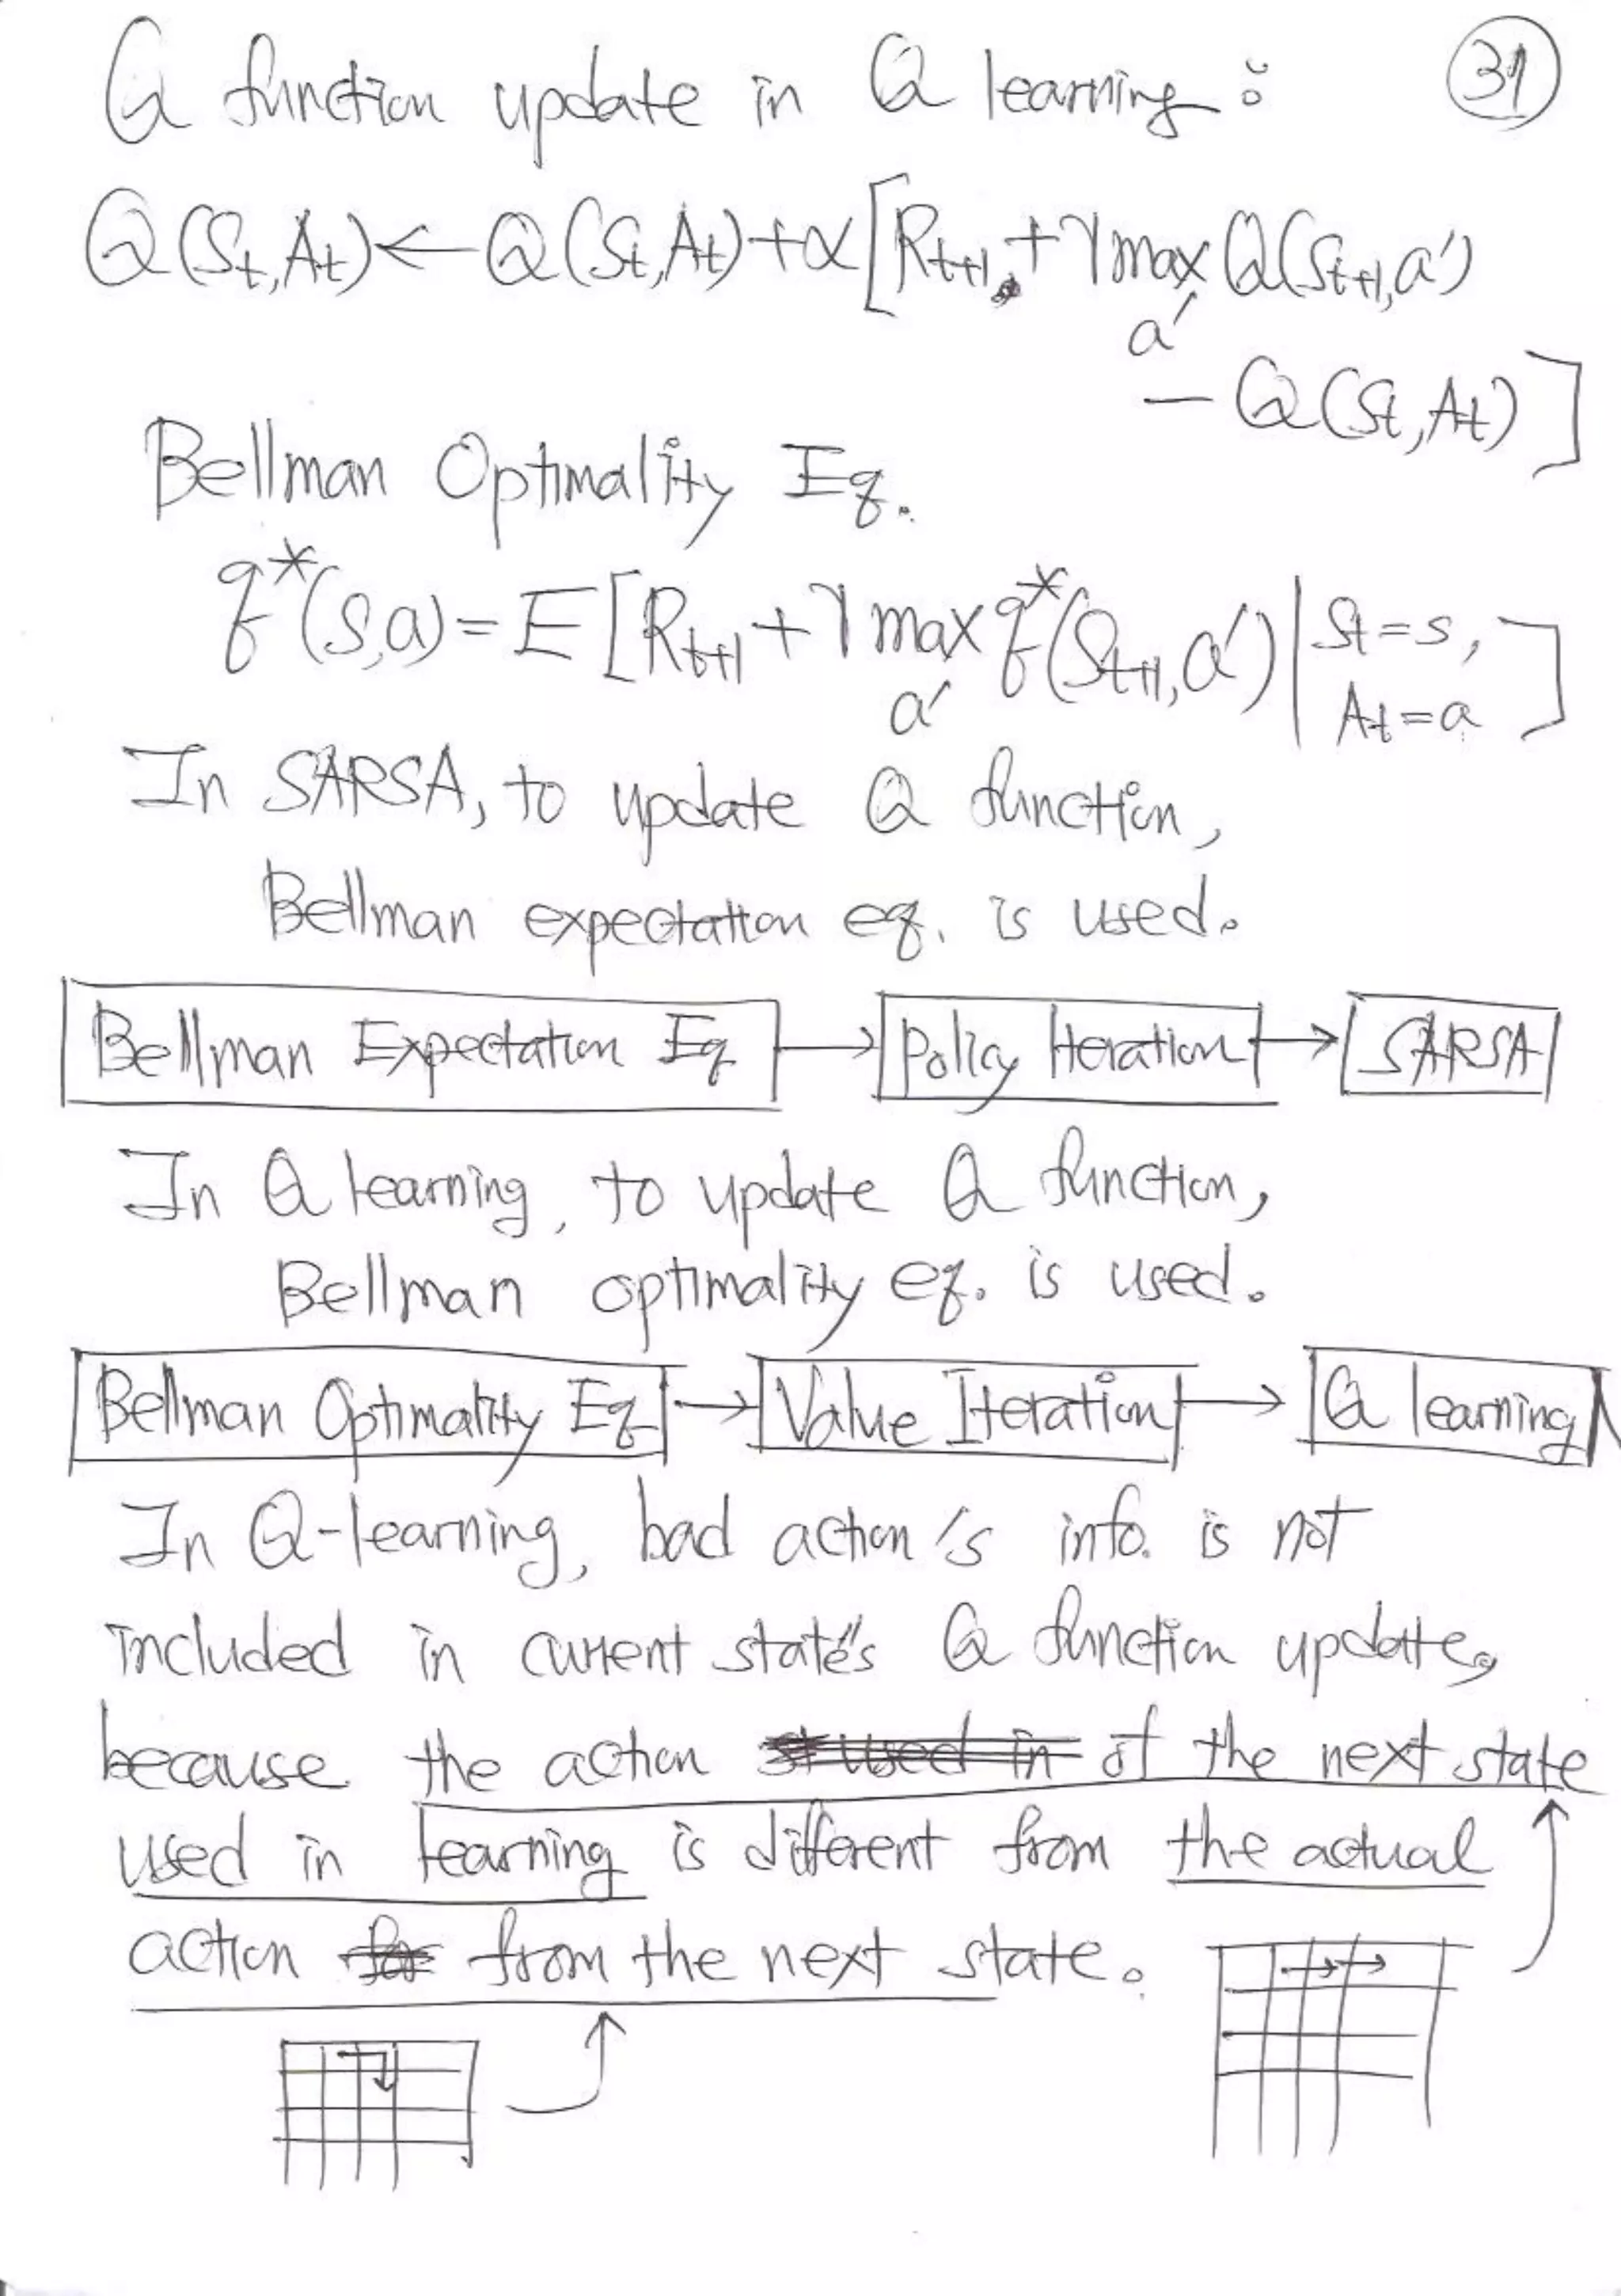 Q function update in Q learning : 31
Q(St,At)←Q(St,At)+α[Rt+1+γmax Q(St+1,a')
a'
−Q(St,At)]
Bellman Optimality Eq.
q*(s,a)=E[Rt+1+γmax q*(St+1,a')|St=s,]
a' At=a
In SARSA, to update Q function,
Bellman expectation eq. is used.
Bellman Expectation Eq → Policy Iteration → SARSA
In Q learning, to update Q function,
Bellman optimality eq. is used.
Bellman Optimality Eq → Value Iteration → Q learning
In Q-learning, bad action's info. is not
included in current state's Q function update,
because the action used in of the next state
used in learning is different from the actual
action for from the next state.